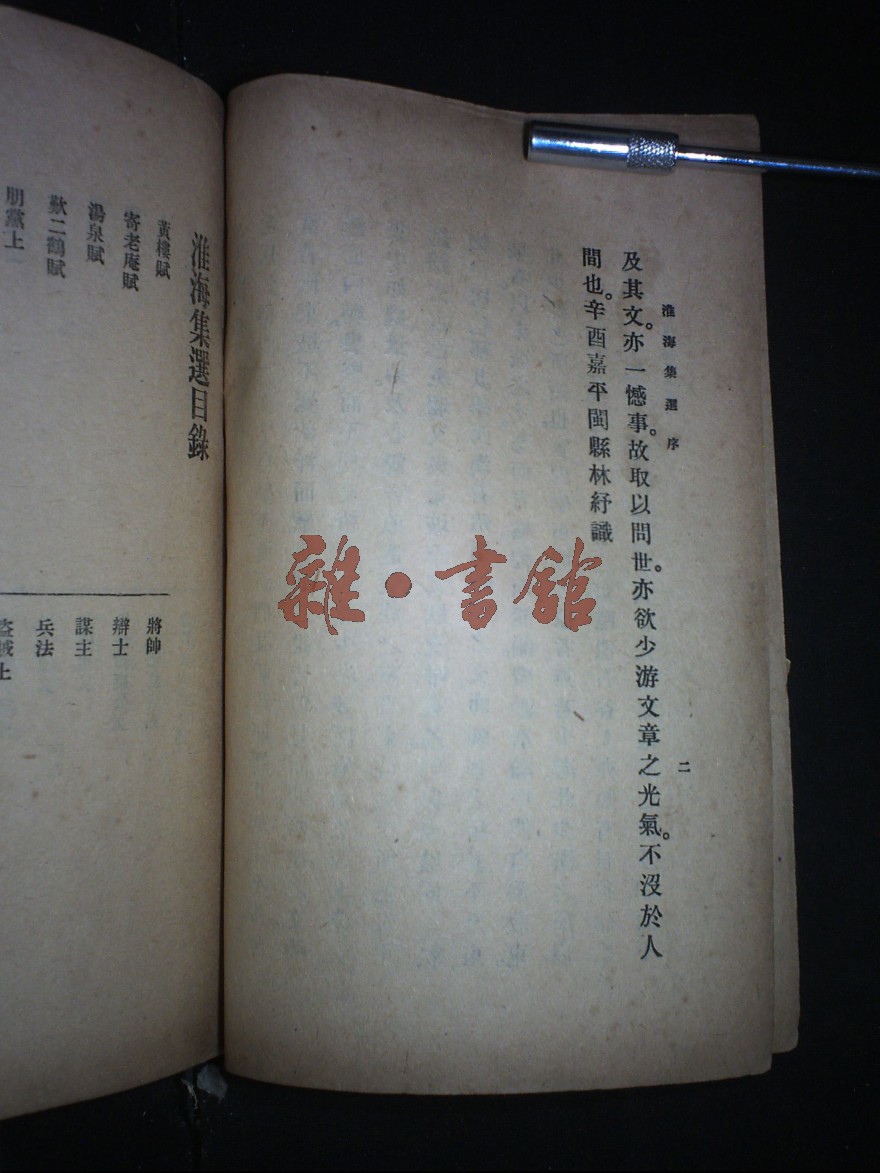 淮海集選序
二
及其文。亦一憾事。故取以問世。亦欲少游文章之光氣。不沒於人
間也。辛酉嘉平閩縣林紓識
雜·書館
淮海集選目錄
黃樓賦
寄老庵賦
湯泉賦
歎二鶴賦
朋黨上
將帥
辯士
謀主
兵法
盜賊上